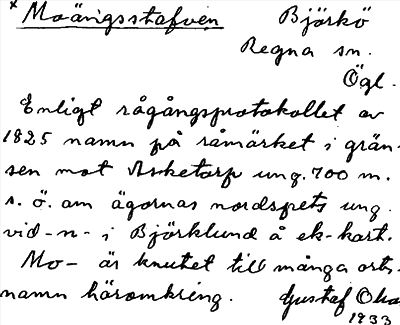 x Moängsstafven Björkö
Regna sn.
Ögl.
Enligt rågångsprotokollet av
1825 namn på råmärket i grän-
sen mot Asketorp ung. 700 m.
s. ö. om ägornas nordspets ung.
vid -n- i Björklund å ek-kart.
Mo- är knutet till många orts-
namn häromkring. Gustaf
1933